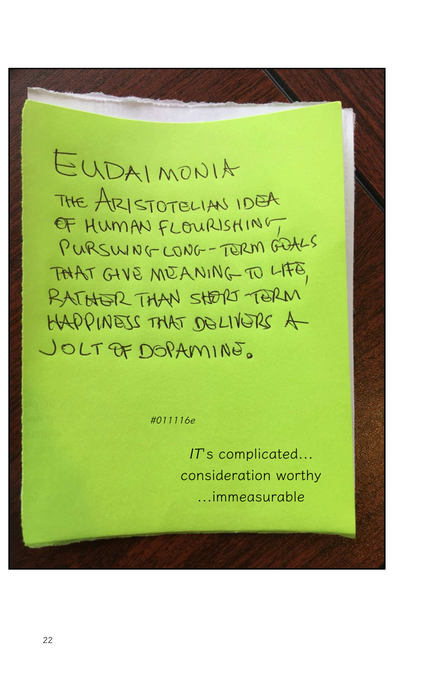 EUDAIMONIA
THE ARISTOTELIAN IDEA
OF HUMAN FLOURISHING,
PURSUING LONG-TERM GOALS
THAT GIVE MEANING TO LIFE,
RATHER THAN SHORT TERM
HAPPINESS THAT DELIVERS A
JOLT OF DOPAMINE.
#011116e
IT's complicated...
consideration worthy
...immeasurable
22